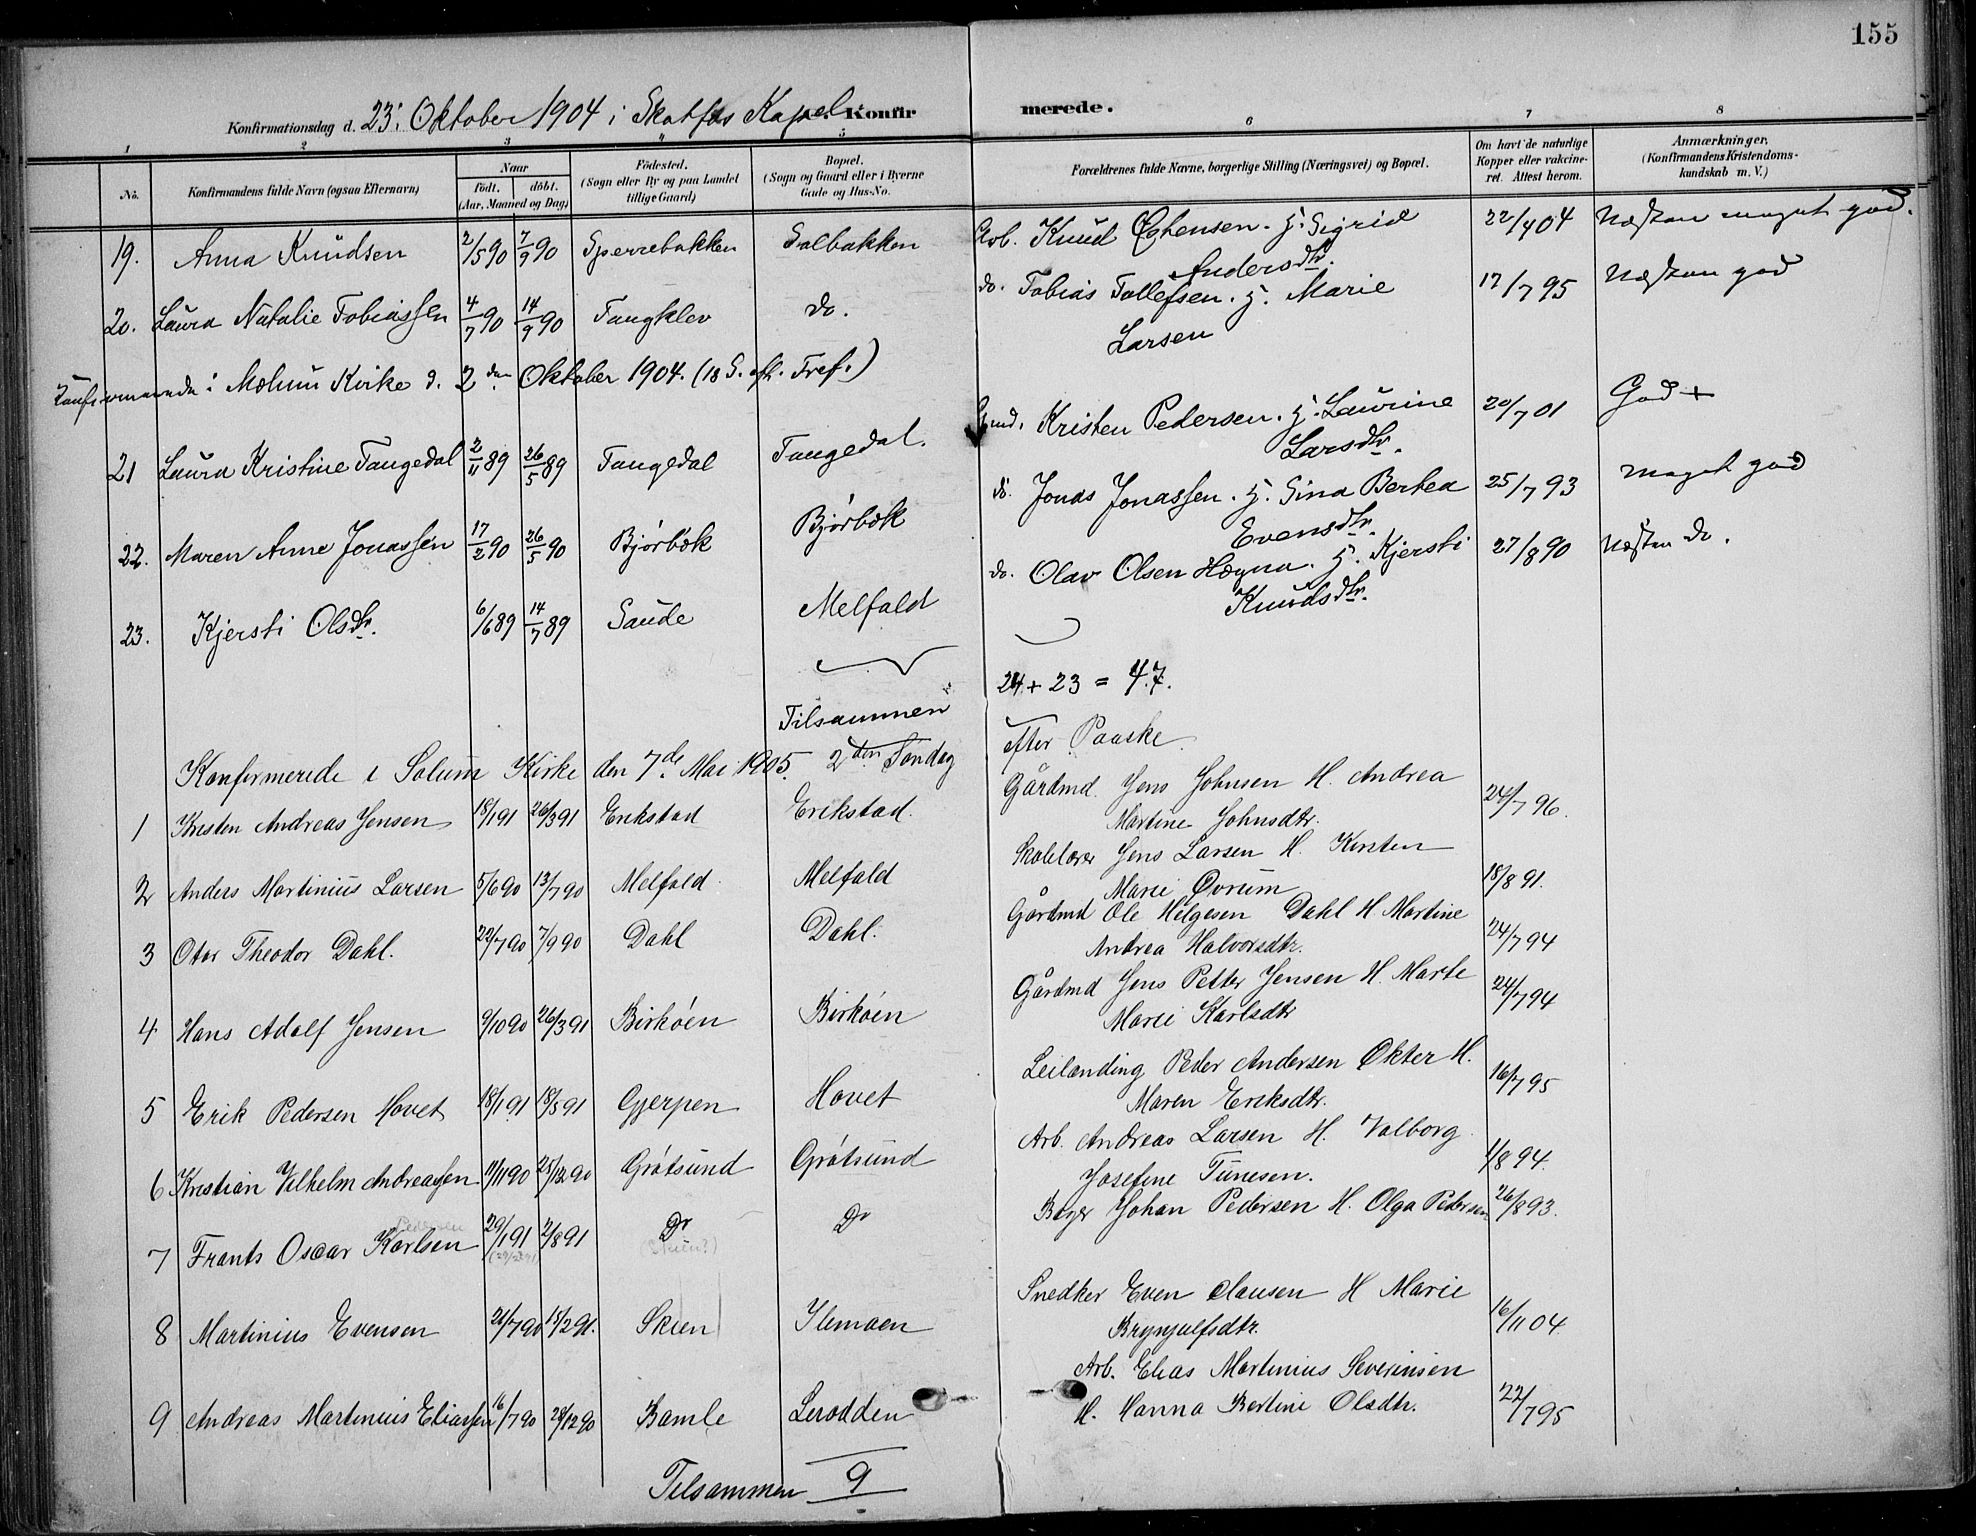 155
Konfirmationsdag d. 23. Oktober 1904 i Skotfos Kapel. Konfirmerede.
1 2 3 4 5 6 7 8
No. Konfirmandens fulde Navn (ogsaa Efternavn) Naar født. døbt. (Aar, Maaned og Dag) Fødested. (Sogn eller By og paa Landet tillige Gaard) Bopæl. (Sogn og Gaard eller i Byerne Gade og Hus-No. Forældrenes fulde Navne, borgerlige Stilling (Næringsvei) og Bopæl. Om havt de naturlige Kopper eller vakcineret. Attest herom. Anmærkninger. (Konfirmandens Kristendomskundskab m. V.)
19. Anna Knudsen 2/5 90 7/9 90 Sperrebakken Solbakken Arb. Knud . H. Sigrid Andersdtr. 22/4 04 Næsten meget god.
20. Laura Natalie Tobiassen 4/7 90 14/9 90 Tangklev do. do. Tobias Tollefsen. H. Marie Larsen 17/7 95 Næsten god
Konfirmerede i Mælum Kirke d. 2den Oktober 1904. (18 S. eft. Tref.)
21 Laura Kristine Tangedal 2/11 89 26/5 89 Tangedal Tangedal. Gmd. Kristen Pedersen. H. Laurine Larsdtr. 20/7 01 God +
22. Maren Anne Jonassen 17/2 90 26/5 90 Bjørbæk Bjørbæk do. Jonas Jonassen. H. Gina Bertea Evensdtr. 25/7 93 meget god
23. Kjersti Olsdtr. 6/6 89 14/7 89 Saude Melfald do. Olav Olsen Høgna. H. Kjersti Knudsdtr. 27/8 90 Næsten do.
Tilsammen 24 + 23 = 47.
Konfirmerede i Solum Kirke den 7de Mai 1905. 2den Søndag efter Paaske
1 Kristen Andreas Jensen 18/1 91 26/3 91 Erikstad Erikstad. Gårdmd. Jens Johnsen H. Andrea Martine Johnsdtr. 24/7 96.
2 Anders Martinius Larsen 5/6 90 13/7 90 Melfald. Melfald Skolelærer Jens Larsen H. Kirsten Marie Øvrum 18/8 91.
3 Otar Theodor Dahl. 22/7 90 7/9 90 Dahl Dahl. Gårdmd Ole Helgesen Dahl H Martine Andrea Halvorsdtr. 24/7 94
4 Hans Adolf Jensen 9/10 90 26/3 91 Birkøen Birkøen Gårdmd Jens Petter Jensen H. Marte Marie Karlsdtr 24/7 94
5 Erik Pedersen Hovet 18/1 91 18/5 91 Gjerpen Hovet Leilending Peder Andersen Økter H. Maren Eriksdtr. 16/7 95
6 Kristian Vilhelm Andreassen 11/11 90 25/12 90 Grøtsund Grøtsund Arb. Andreas Larsen H. Valborg Josefine Tunesen. 1/8 94.
7 Frants Oscar Karlsen Pedersen 29/1 91 2/8 91 Do (Skien?) Do Bager Johan Pedersen H. Olga Pedersen 26/8 93.
8 Martinius Evensen 26/7 90 15/2 91. Skien Ilemoen Snedker Even Clausen H Marie Brynjulfsdtr. 16/11 04
9 Andreas Martinius Eliassen 16/7 90 28/12 90 Bamle Lerodden Arb. Elias Martinius Severinsen H. Hanna Bertine Olsdtr. 22/7 95
Tilsammen 9